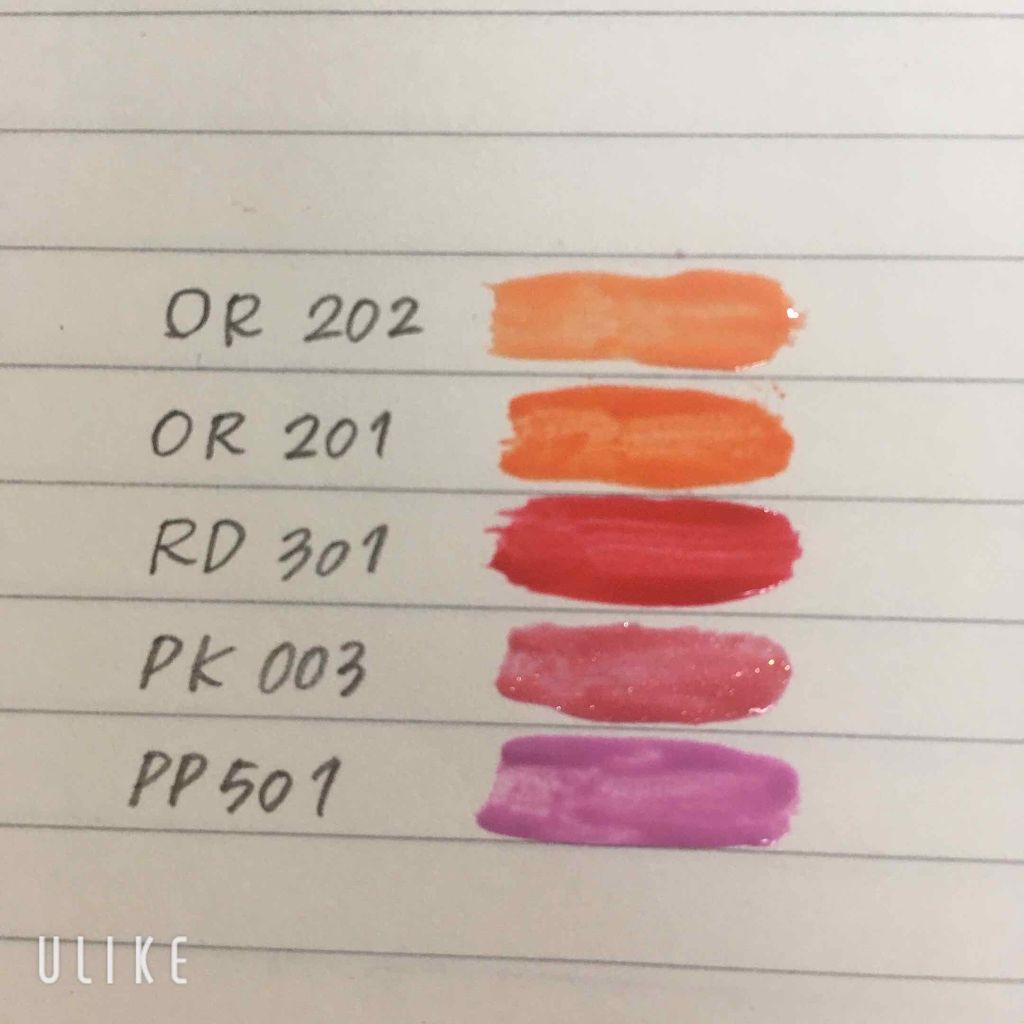 OR 202
OR 201
RD 301
PK 003
PP501
ULIKE